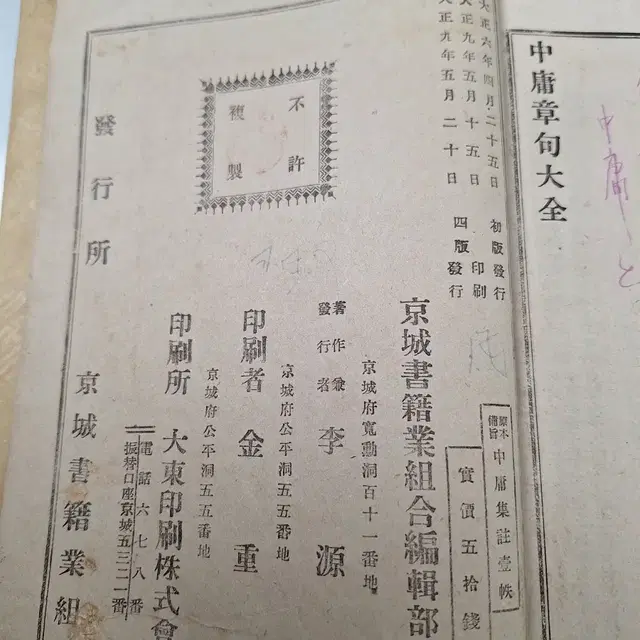 中庸章句大全
中庸
大正六年四月二十五日 初版發行
大正九年五月十五日 印刷
大正九年五月二十日 四版發行
原本備旨 中庸集註壹帙
實價五拾錢
京城書籍業組合編輯部
京城府寬勳洞百十一番地
著作兼發行者 李 源
京城府公平洞五五番地
印刷者 金 重
京城府公平洞五五番地
印刷所 大東印刷株式會
電話六七八番
振替口座京城五三二一番
不許
複製
發行所
京城書籍業組